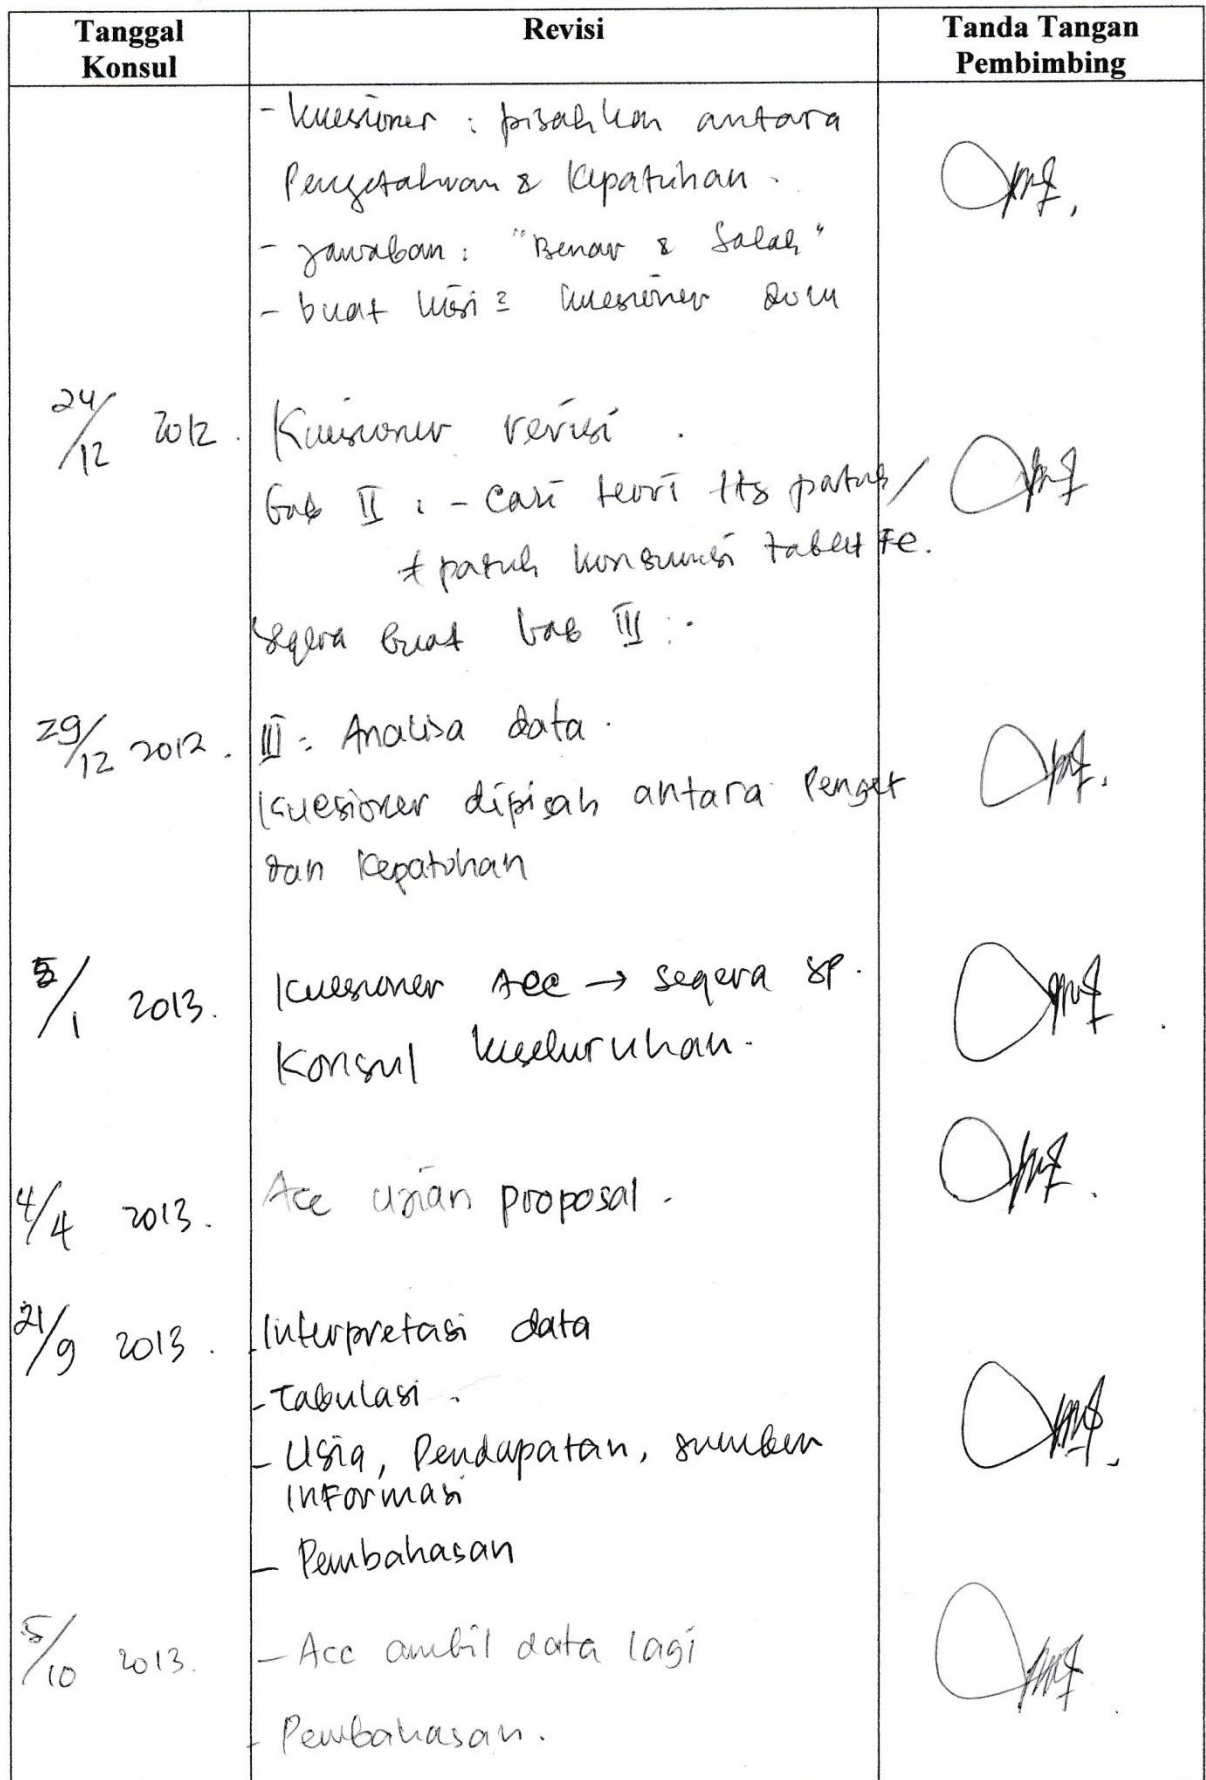 Tanggal Konsul
Revisi
Tanda Tangan Pembimbing
- kuesioner : pisahkan antara
Pengetahuan & Kepatuhan.
- Jawaban : "Benar & Salah"
- buat kisi2 kuesioner dulu
24/12 2012. Kuisioner revisi.
Bab II : - Cari teori ttg patuh/
≠ patuh konsumsi tablet Fe.
Segera buat bab III :.
29/12 2012. III : Analisa data.
Kuesioner dipisah antara Penget
dan Kepatuhan
5/1 2013. Kuesioner Acc → segera
Konsul keseluruhan.
4/4 2013. Acc ujian proposal.
21/9 2013. Interpretasi data
- Tabulasi.
- Usia, Pendapatan, sumber
informasi
- Pembahasan
5/10 2013. - Acc ambil data lagi
- Pembahasan.